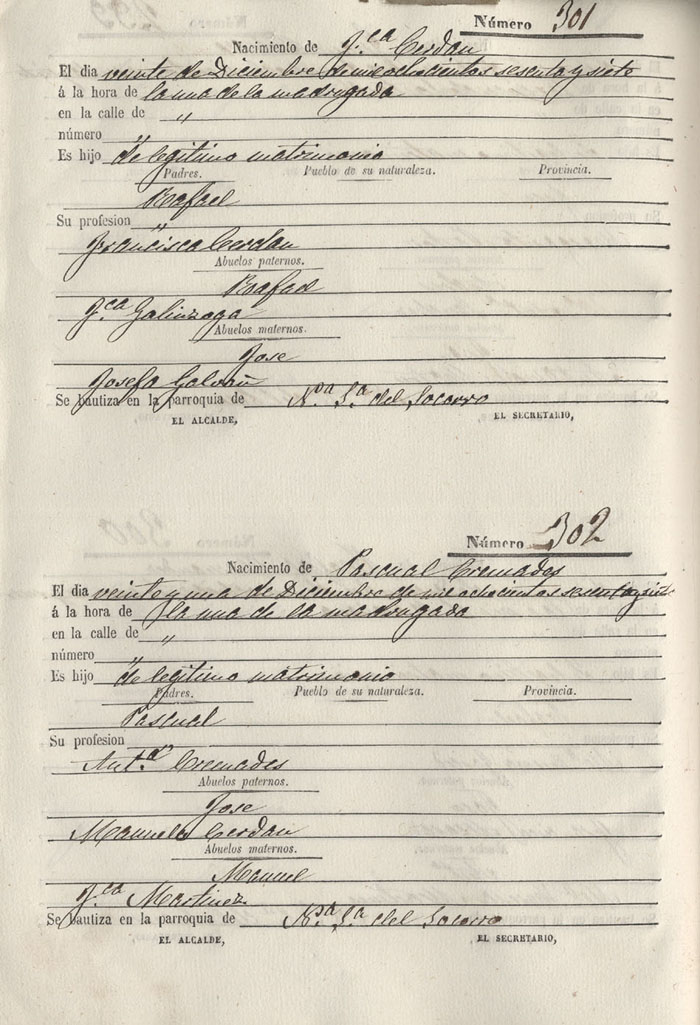 Número 301
Nacimiento de Fca Cerdan
El dia veinte de Diciembre de mil ochocientos sesenta y siete
á la hora de la una de la madrugada
en la calle de "
número "
Es hijo de legitimo matrimonio
Padres. Pueblo de su naturaleza. Provincia.
Rafael
Su profesion "
Francisca Cerdan
Abuelos paternos.
Rafael
Fca Galinzoga
Abuelos maternos.
Jose
Josefa Galvañ
Se bautiza en la parroquia de Nra Sra del Socorro
EL ALCALDE, EL SECRETARIO,
Número 302
Nacimiento de Pascual Cremades
El dia veinte y una de Diciembre de mil ochocientos sesenta y siete
á la hora de la una de la madrugada
en la calle de "
número "
Es hijo de legitimo matrimonio
Padres. Pueblo de su naturaleza. Provincia.
Pascual
Su profesion "
Anta Cremades
Abuelos paternos.
Jose
Manuela Cerdan
Abuelos maternos.
Manuel
Fca Martinez
Se bautiza en la parroquia de Nra Sra del Socorro
EL ALCALDE, EL SECRETARIO,